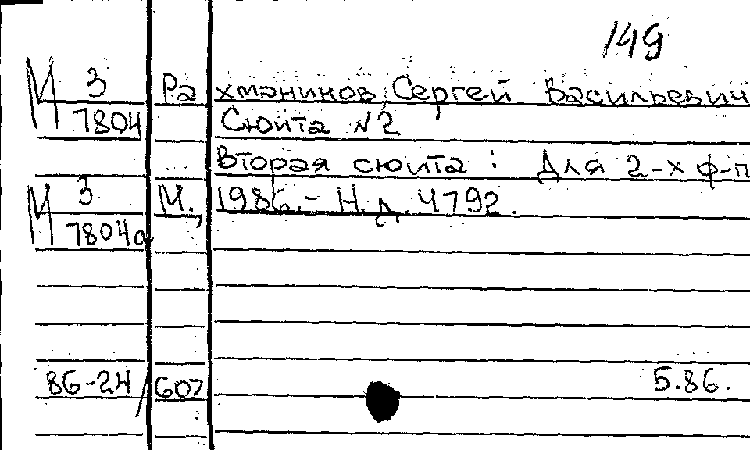 149
М 3 Рахманинов, Сергей Васильевич
7804 Сюита №2
Вторая сюита : Для 2-х ф-п
М 3 М., 1986.- Н.д. 4792.
7804а
86-24/607 5.86.